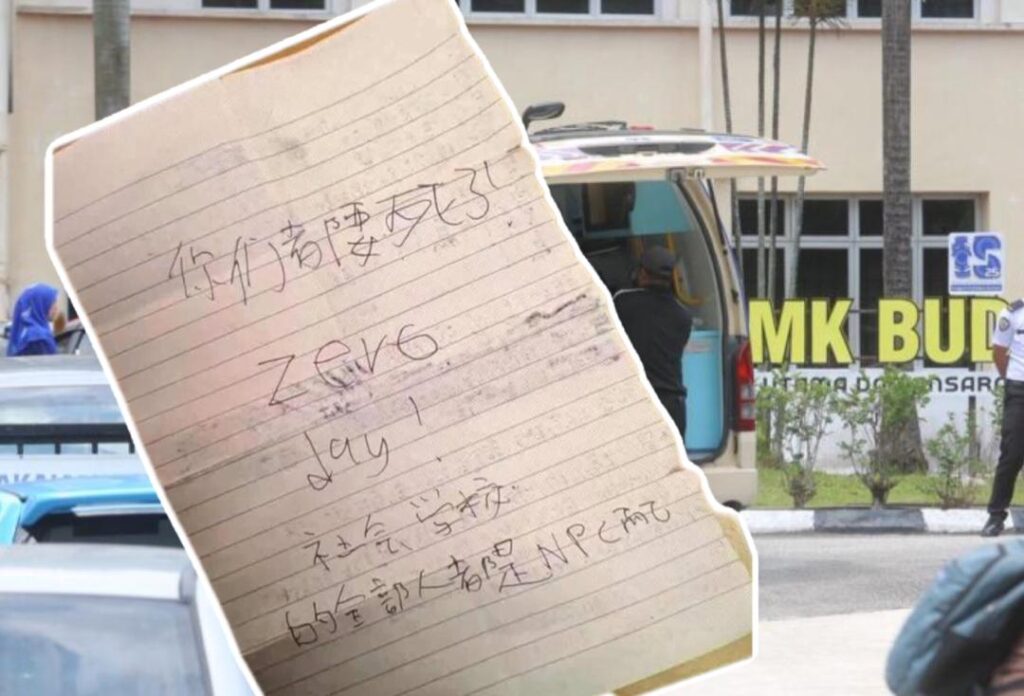 你们都要死了!
zero
day!
社会学校
的全部人都是NPC而已
MK BUD
UTAMA DAMANSARA
25
AKA